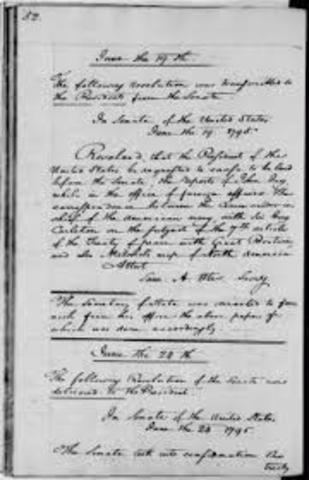 82.
June the 19th
The following resolution was transmitted to
the President from the Senate
In Senate of the United States
June the 19. 1795
Resolved, that the President of the
United States be requested to cause to be laid
before the Senate, the reports of John Jay,
while in the office of foreign affairs The
correspondence between the Commander in
chief of the American army with Sir Guy
Carleton on the subject of the 7th article
of the Treaty of peace with Great Britain,
and also Mitchell's map of North America
Attest
Sam A. Otis Secrey
The Secretary of State was directed to fur
nish from his office the above papers &
which was done accordingly
June the 24th
The following Resolution of the Senate was
delivered to the President
In Senate of the United States
June the 24 1795
The Senate took into consideration the
treaty